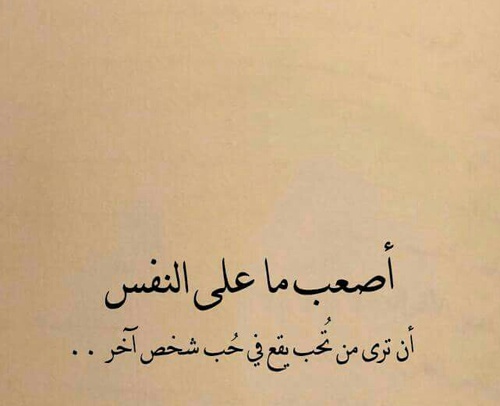 أصعب ما على النفس
أن ترى من تُحب يقع في حُب شخص آخر . .